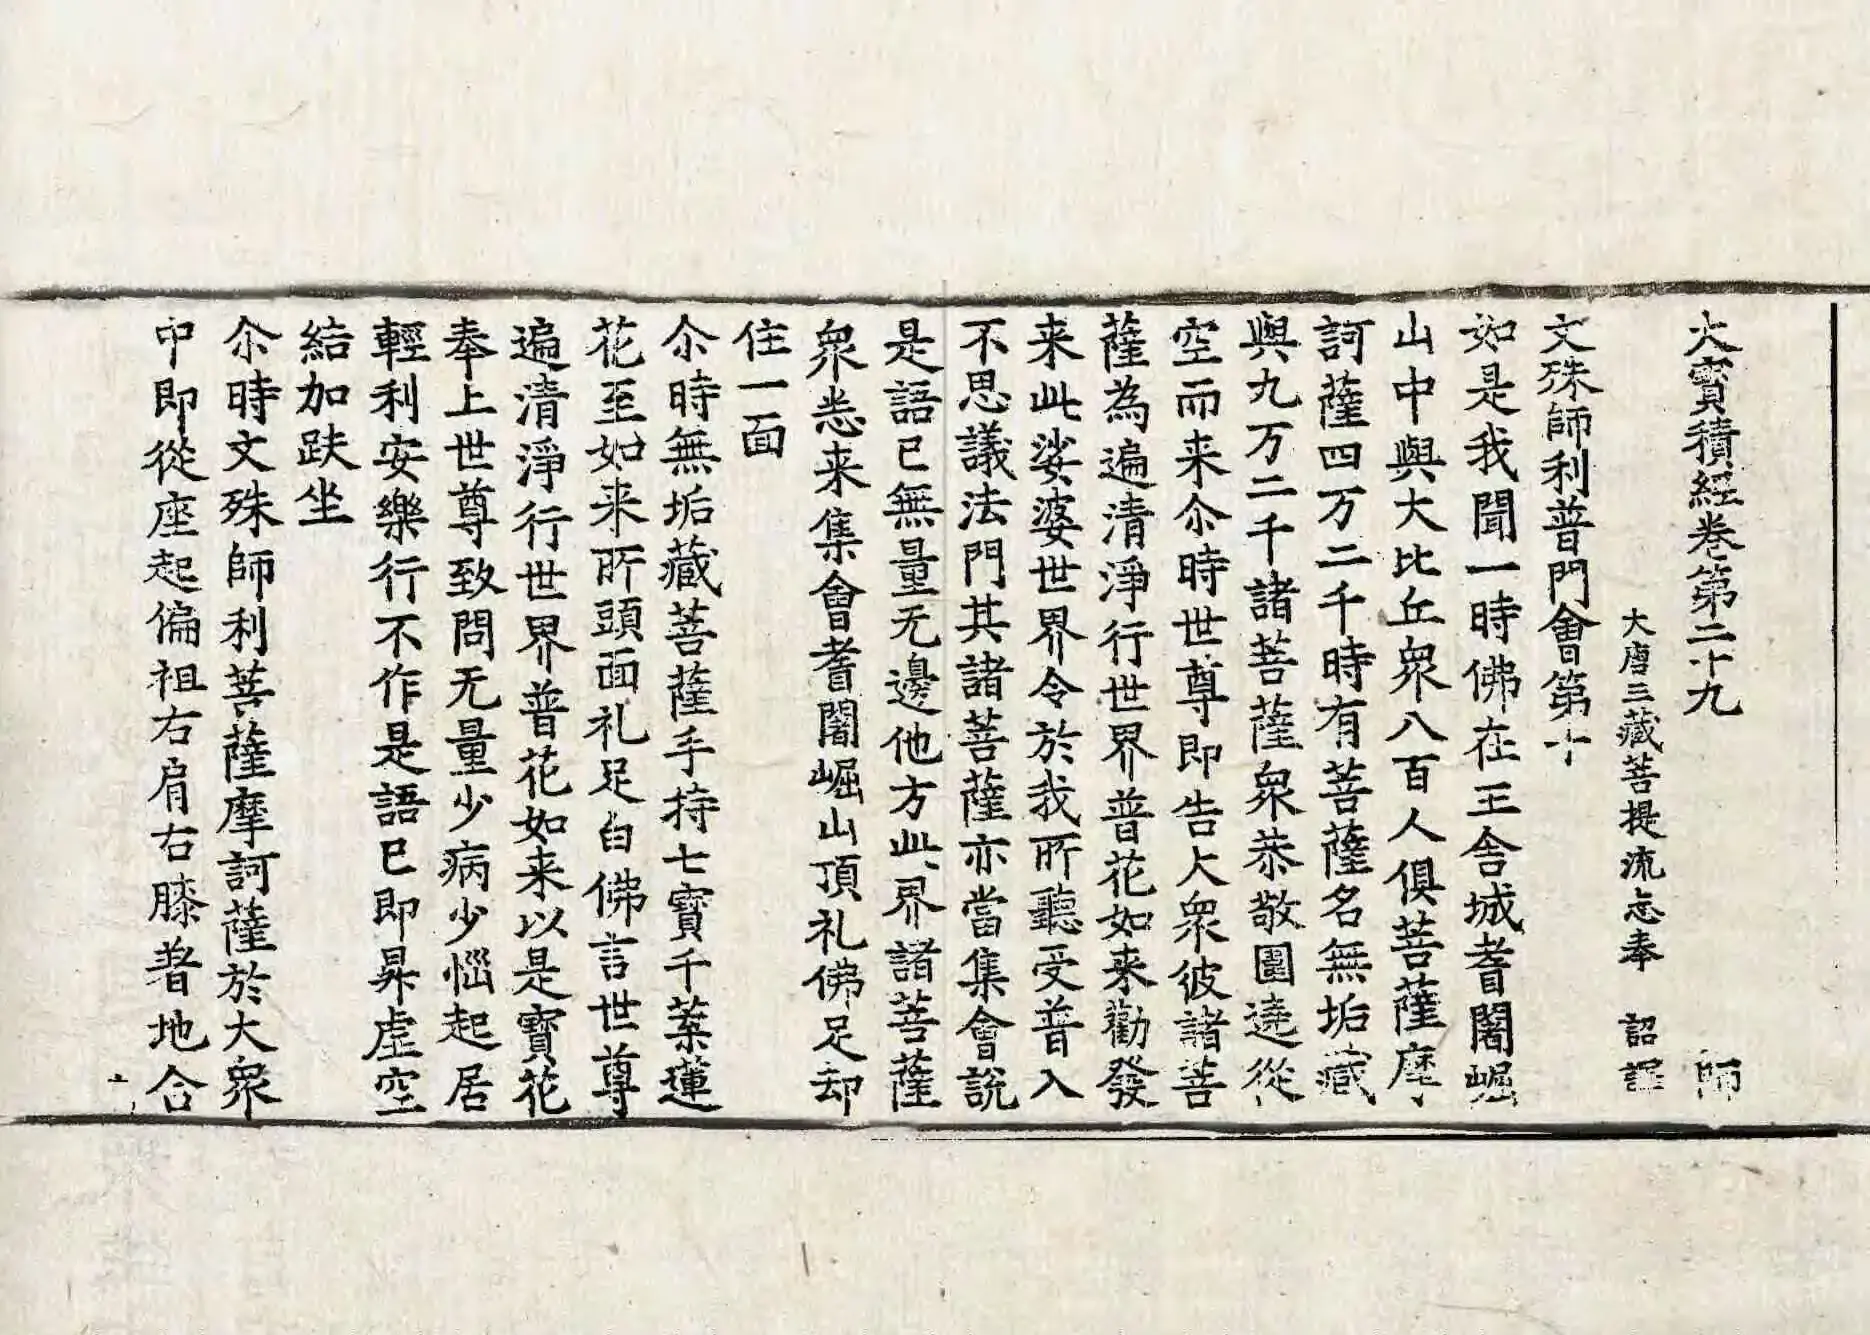 大寶積經卷第二十九 師
大唐三藏菩提流志奉 詔譯
文殊師利普門會第十
如是我聞一時佛在王舍城耆闍崛
山中與大比丘衆八百人俱菩薩摩
訶薩四万二千時有菩薩名無垢藏
與九万二千諸菩薩衆恭敬圍遶從
空而来尒時世尊即告大衆彼諸菩
薩為遍清淨行世界普花如来勸發
来此娑婆世界令於我所聽受普入
不思議法門其諸菩薩亦當集會說
是語已無量无邊他方此界諸菩薩
衆悉来集會耆闍崛山頂礼佛足却
住一面
尒時無垢藏菩薩手持七寶千葉蓮
花至如来所頭面礼足白佛言世尊
遍清淨行世界普花如来以是寶花
奉上世尊致問无量少病少惱起居
輕利安樂行不作是語已即昇虛空
結加趺坐
尒時文殊師利菩薩摩訶薩於大衆
中即從座起偏袒右肩右膝著地合